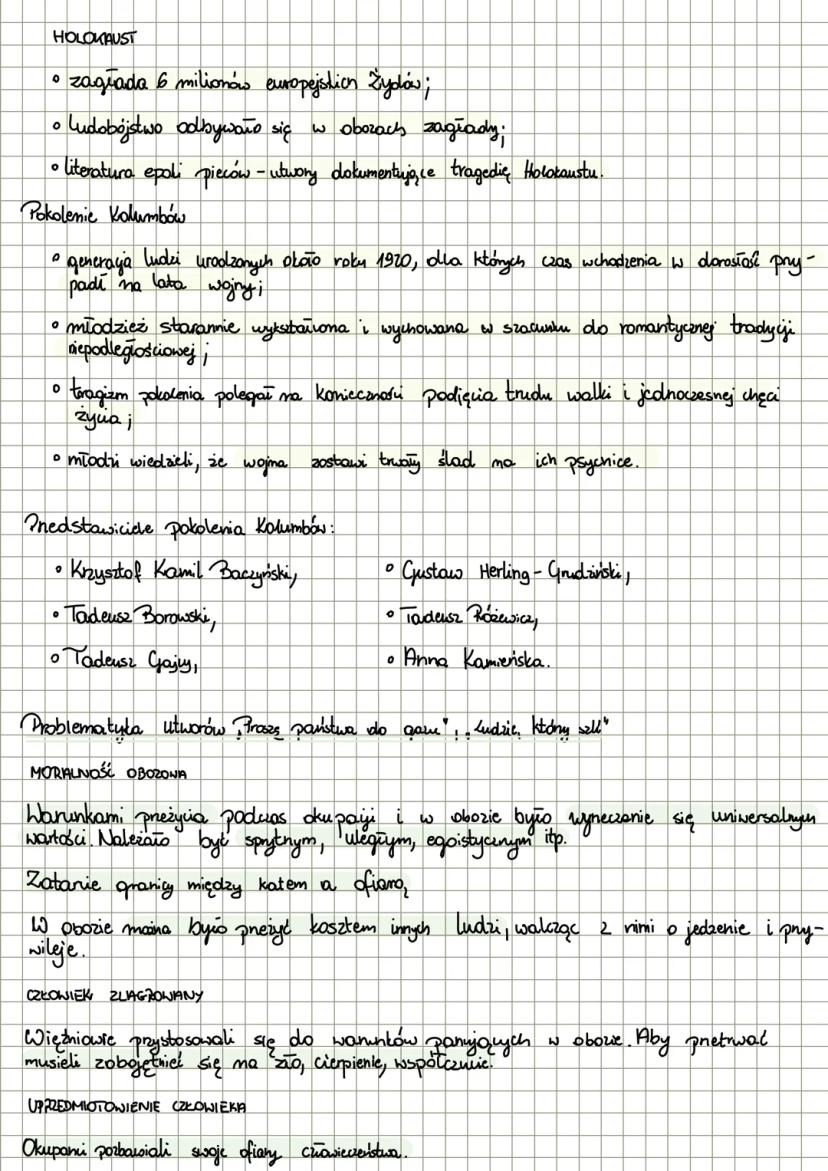 HOLOKAUST
◦ zagłada 6 milionów europejskich Żydów;
◦ ludobójstwo odbywało się w obozach zagłady;
◦ literatura epoki pieców – utwory dokumentujące tragedię Holokaustu.
Pokolenie Kolumbów
◦ generacja ludzi urodzonych około roku 1920, dla których czas wchodzenia w dorosłość przy-
padł na lata wojny;
◦ młodzież starannie wykształcona i wychowana w szacunku do romantycznej tradycji
niepodległościowej;
◦ tragizm pokolenia polegał na konieczności podjęcia trudu walki i jednoczesnej chęci
życia;
◦ młodzi wiedzieli, że wojna zostawi trwały ślad na ich psychice.
Przedstawiciele pokolenia Kolumbów:
◦ Krzysztof Kamil Baczyński, ◦ Gustaw Herling-Grudziński,
◦ Tadeusz Borowski, ◦ Tadeusz Różewicz,
◦ Tadeusz Gajcy, ◦ Anna Kamieńska.
Problematyka utworów „Proszę państwa do gazu", „Ludzie, którzy szli"
MORALNOŚĆ OBOZOWA
Warunkami przeżycia podczas okupacji i w obozie było wyrzeczenie się uniwersalnych
wartości. Należało być sprytnym, uległym, egoistycznym itp.
Zatarcie granicy między katem a ofiarą
W obozie można było przeżyć kosztem innych ludzi, walcząc z nimi o jedzenie i przy-
wileje.
CZŁOWIEK ZLAGROWANY
Więźniowie przystosowali się do warunków panujących w obozie. Aby przetrwać
musieli zobojętnieć się na zło, cierpienie, współczucie.
UPRZEDMIOTOWIENIE CZŁOWIEKA
Okupanci pozbawiali swoje ofiary człowieczeństwa.